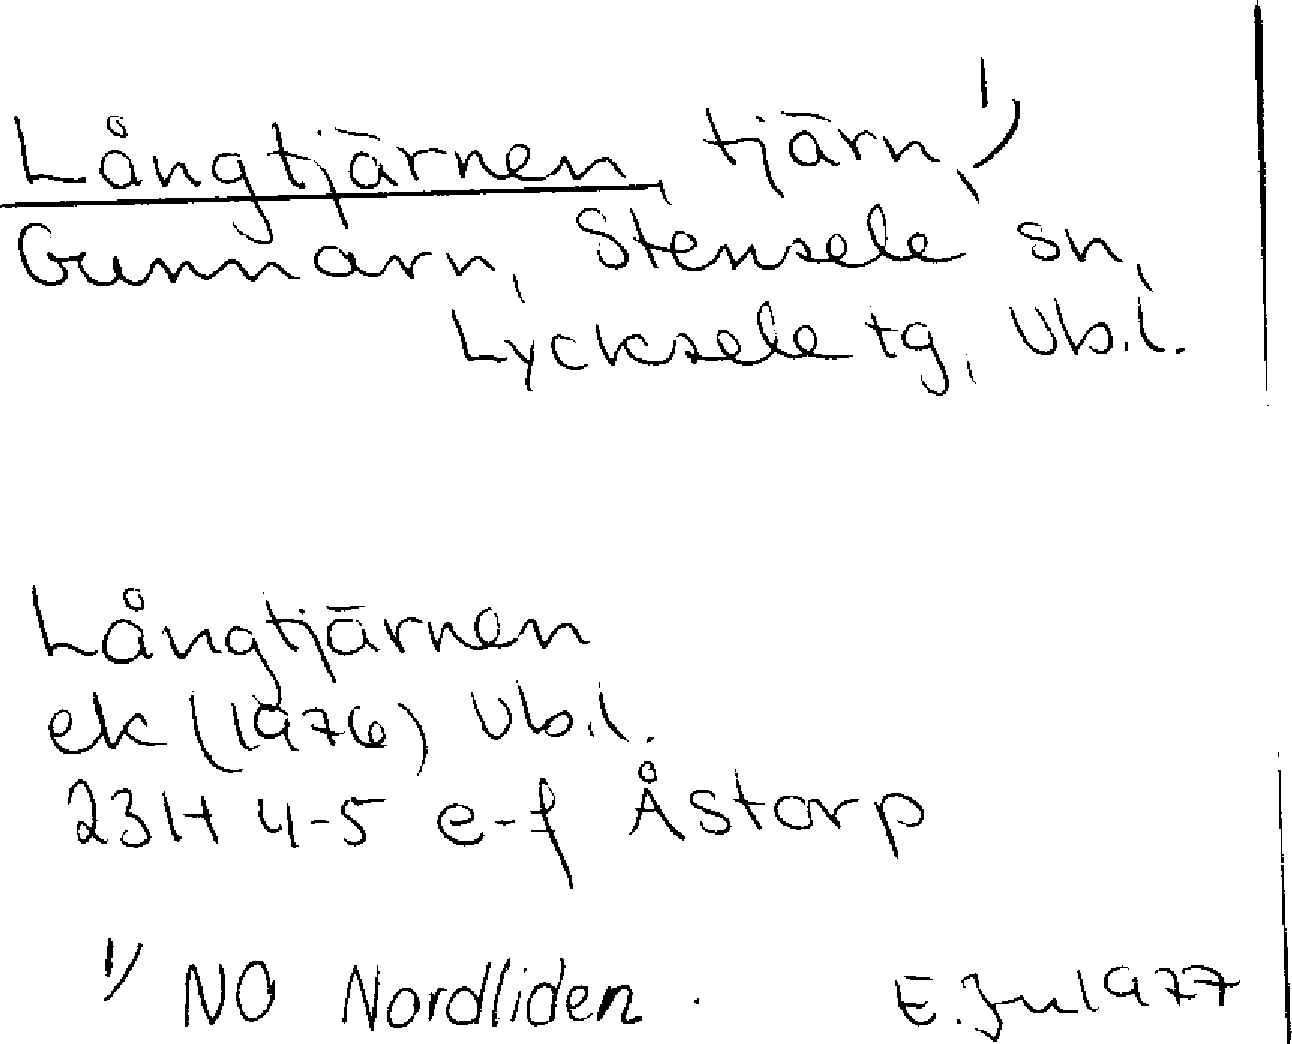 Långtjärnen, tjärn, 1)
Gunnarn, Stensele sn,
Lycksele tg, Vb.l.
Långtjärnen
ek (1976) Vb.l.
23H 4-5 e-f Åstorp
1) NO Nordliden.
E. Ju 1977